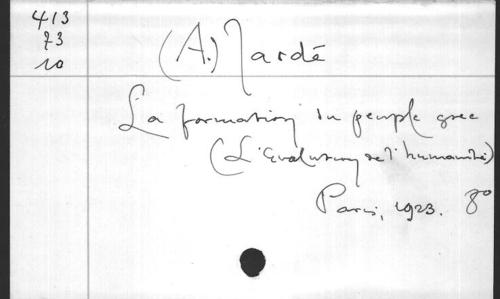 413
23
10
(A.) Jardé
La formation du peuple grec
(L'Évolution de l'humanité)
Paris, 1923. 8°